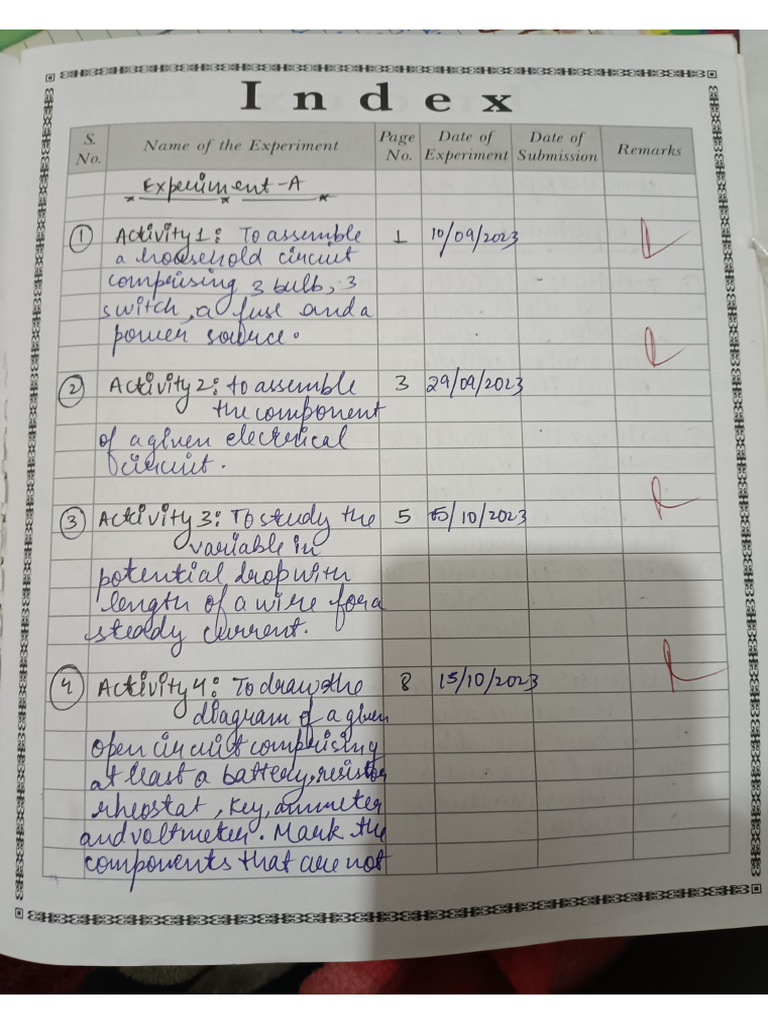 Index
S. No. Name of the Experiment Page No. Date of Experiment Date of Submission Remarks
Experiment-A
1 Activity 1: To assemble 1 10/09/2023
a household circuit
comprising 3 bulb, 3
switch, a fuse and a
power source.
2 Activity 2: to assemble 3 29/09/2023
the component
of a given electrical
circuit.
3 Activity 3: To study the 5 05/10/2023
variable in
potential drop with
length of a wire for a
steady current.
4 Activity 4: To draw the 8 15/10/2023
diagram of a given
open circuit comprising
at least a battery, resistor
rheostat, key, ammeter
and voltmeter. Mark the
components that are not